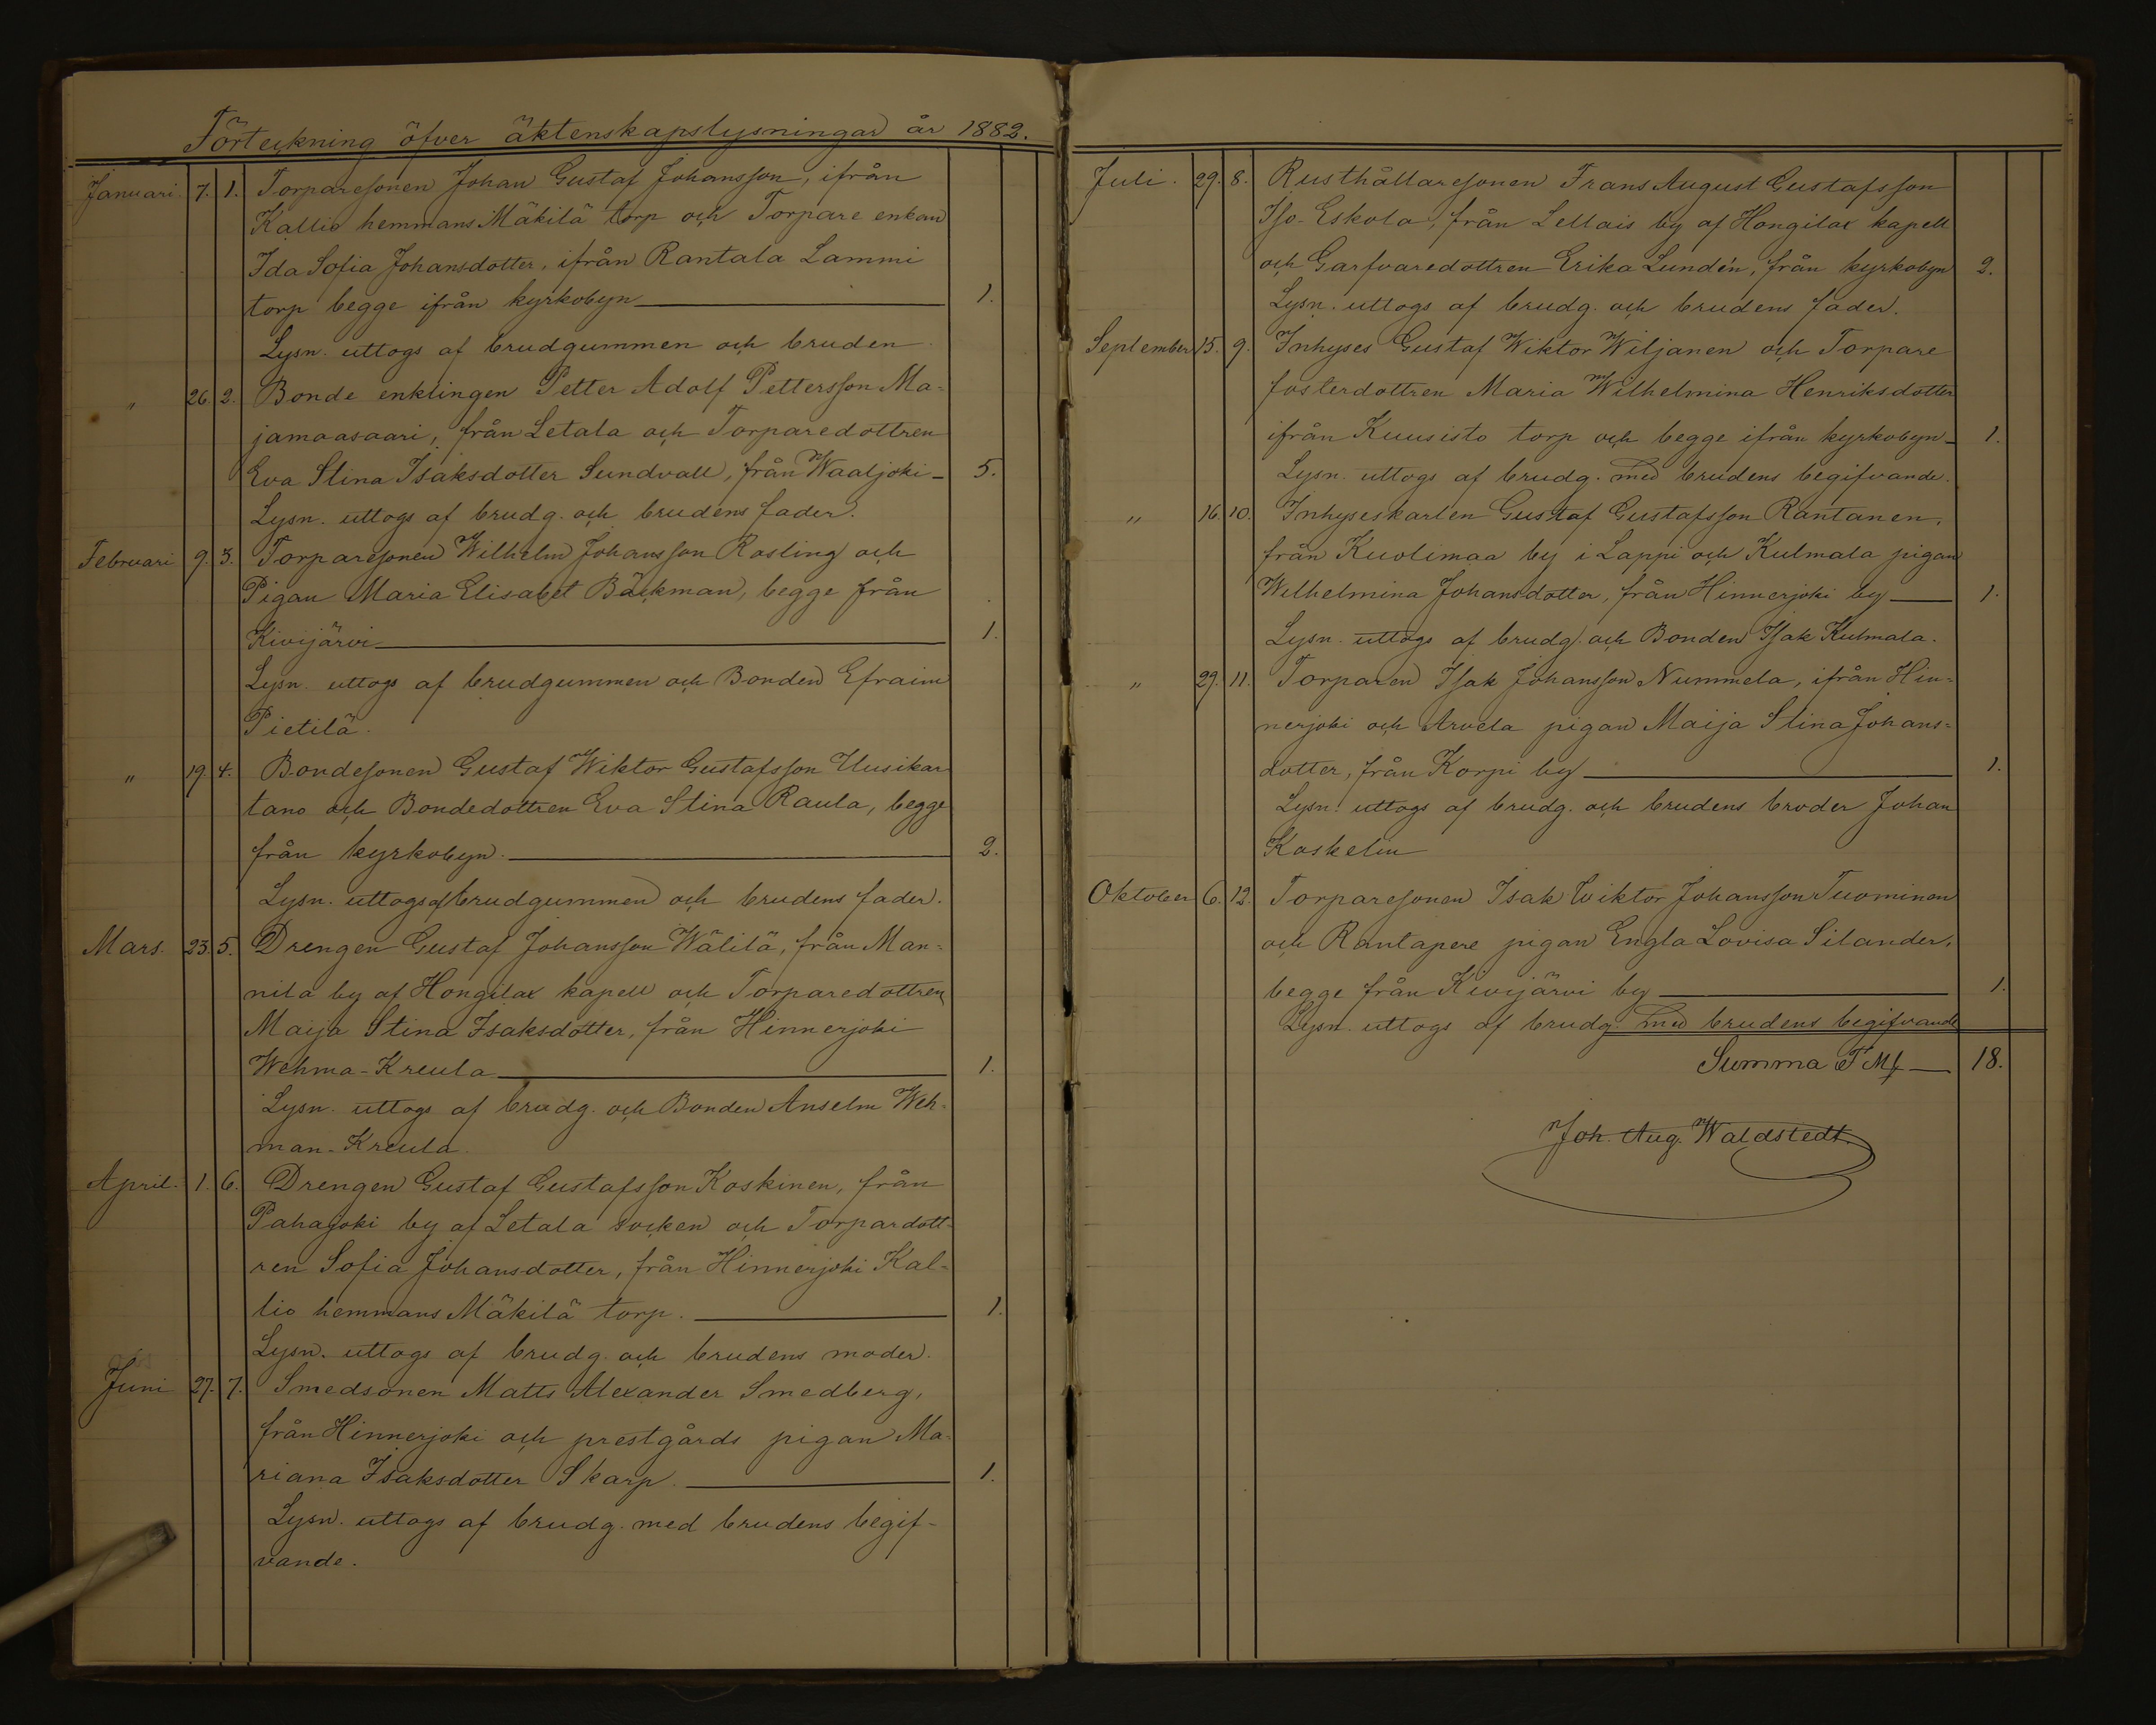 Förteckning öfver äktenskapslysningar år 1882.
Januari. 7. 1. Torparesonen Johan Gustaf Johansson, ifrån
Kallio hemmans Mäkilä torp och Torpare enkan
Ida Sofia Johansdotter, ifrån Rantala Lammi
torp begge ifrån kyrkobyn 1.
Lysn. uttogs af brudgummen och bruden.
" 26. 2. Bonde enklingen Petter Adolf Pettersson Ma-
jamaasaari, från Letala och Torparedottren
Eva Stina Isaksdotter Sundvall, från Waaljoki 5.
Lysn. uttogs af brudg. och brudens fader.
Februari 9. 3. Torparesonen Wilhelm Johansson Rosling och
Pigan Maria Elisabet Bäckman, begge från
Kivijärvi 1.
Lysn. uttogs af brudgummen och Bonden Efraim
Pietilä.
" 19. 4. Bondesonen Gustaf Wiktor Gustafsson Uusikar
tano och Bondedottren Eva Stina Raula, begge
från kyrkobyn. 2.
Lysn. uttogs af brudgummen och brudens fader.
Mars. 23. 5. Drengen Gustaf Johansson Wälilä, från Man-
nila by af Hongilax kapell och Torparedottren
Maija Stina Isaksdotter, från Hinnerjoki
Wehma-Kreula 1.
Lysn. uttogs af brudg. och Bonden Anselm Weh-
man-Kreula.
April. 1. 6. Drengen Gustaf Gustafsson Koskinen, från
Pahajoki by af Letala socken och Torpardott-
ren Sofia Johansdotter, från Hinnerjoki Kal-
lio hemmans Mäkilä torp. 1.
Lysn. uttogs af brudg. och brudens moder.
Juni 27. 7. Smedsonen Matts Alexander Smedberg,
från Hinnerjoki och prestgårds pigan Ma-
riana Isaksdotter Skarp. 1.
Lysn. uttogs af brudg. med brudens begif-
vande.
Juli. 29. 8. Rusthållaresonen Frans August Gustafsson
Iso-Eskola, från Lellais by af Hongilax kapell
och Garfvaredottren Erika Lundén, från kyrkobyn 2.
Lysn. uttogs af brudg. och brudens fader.
September 15. 9. Inhyses Gustaf Wiktor Wiljanen och Torpare
fosterdottren Maria Wilhelmina Henriksdotter
ifrån Kuusisto torp och begge ifrån kyrkobyn 1.
Lysn. uttogs af brudg. med brudens begifvande.
" 16. 10. Inhyseskarlen Gustaf Gustafsson Rantanen,
från Kuolimaa by i Lappi och Kulmala pigan
Wilhelmina Johansdotter, från Hinnerjoki by 1.
Lysn. uttogs af brudg. och Bonden Isak Kulmala.
" 29. 11. Torparen Isak Johansson Nummela, ifrån Hin-
nerjoki och Arvela pigan Maija Stina Johans-
dotter, från Korpi by 1.
Lysn. uttogs af brudg. och brudens broder Johan
Koskelin
Oktober 6. 12. Torparesonen Isak Wiktor Johansson Tuominen
och Rantapere pigan Engla Lovisa Silander,
begge från Kivijärvi by 1.
Lysn. uttogs af brudg. med brudens begifvande
Summa F Mk 18.
Joh. Aug. Waldstedt.